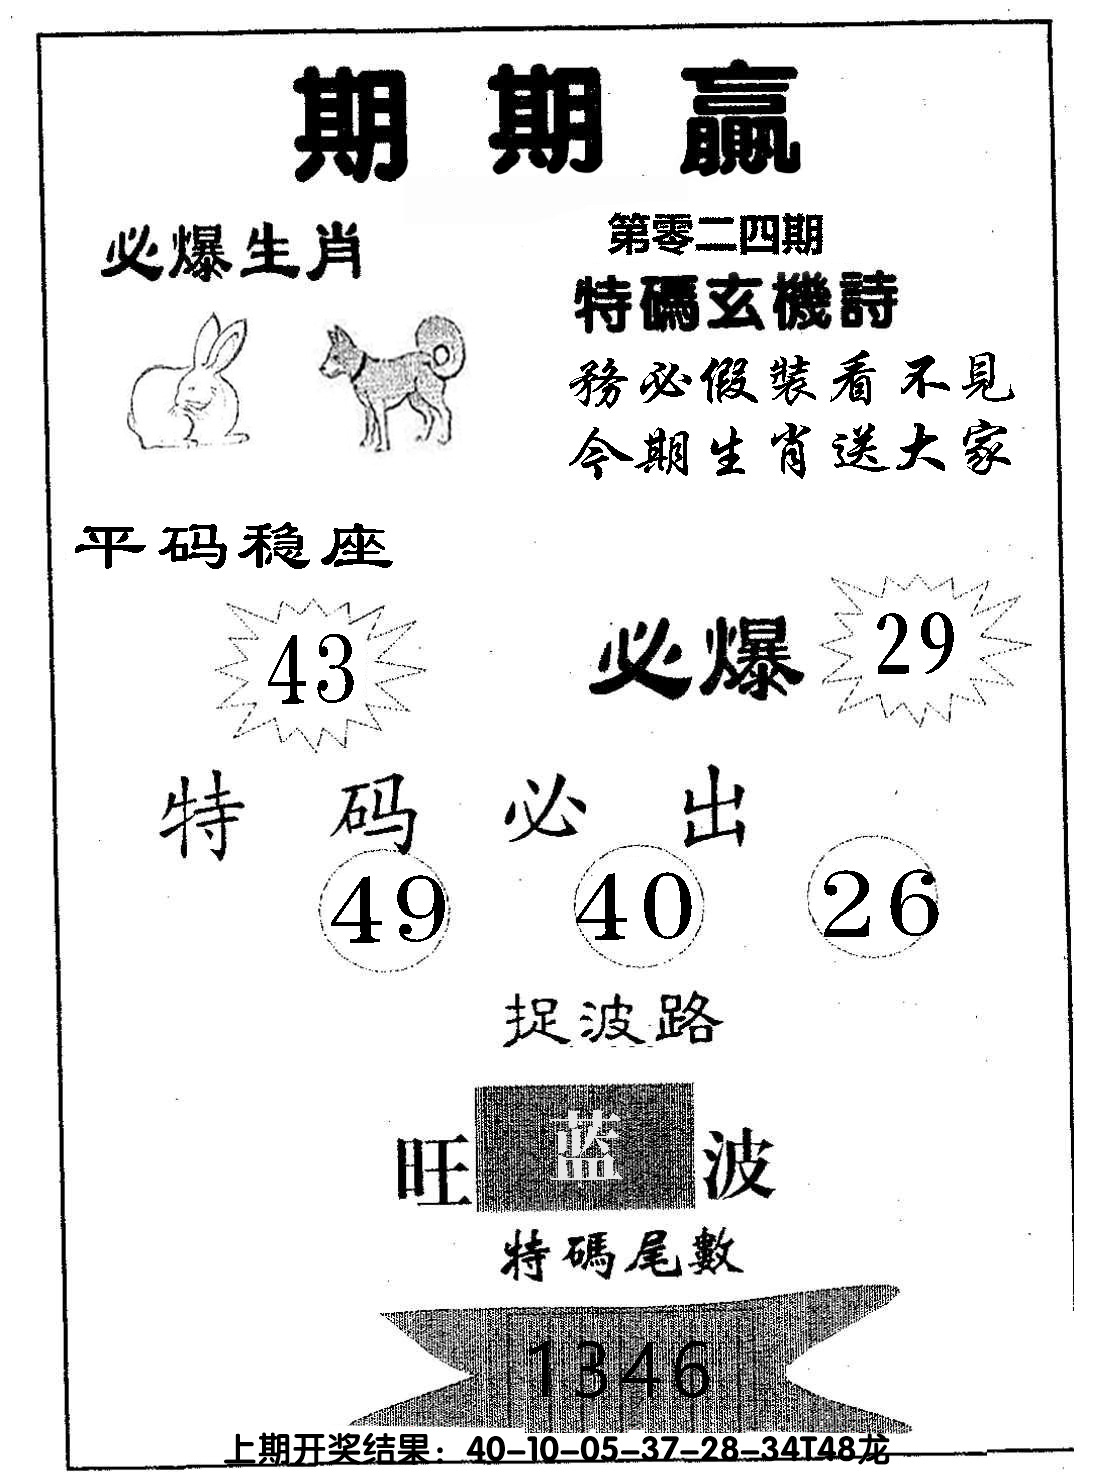 期期赢
必爆生肖
第零二四期
特碼玄機詩
務必假裝看不見
今期生肖送大家
平码稳座
43
必爆 29
特码必出
49 40 26
捉波路
旺蓝波
特碼尾數
1346
上期开奖结果：40-10-05-37-28-34T48龙